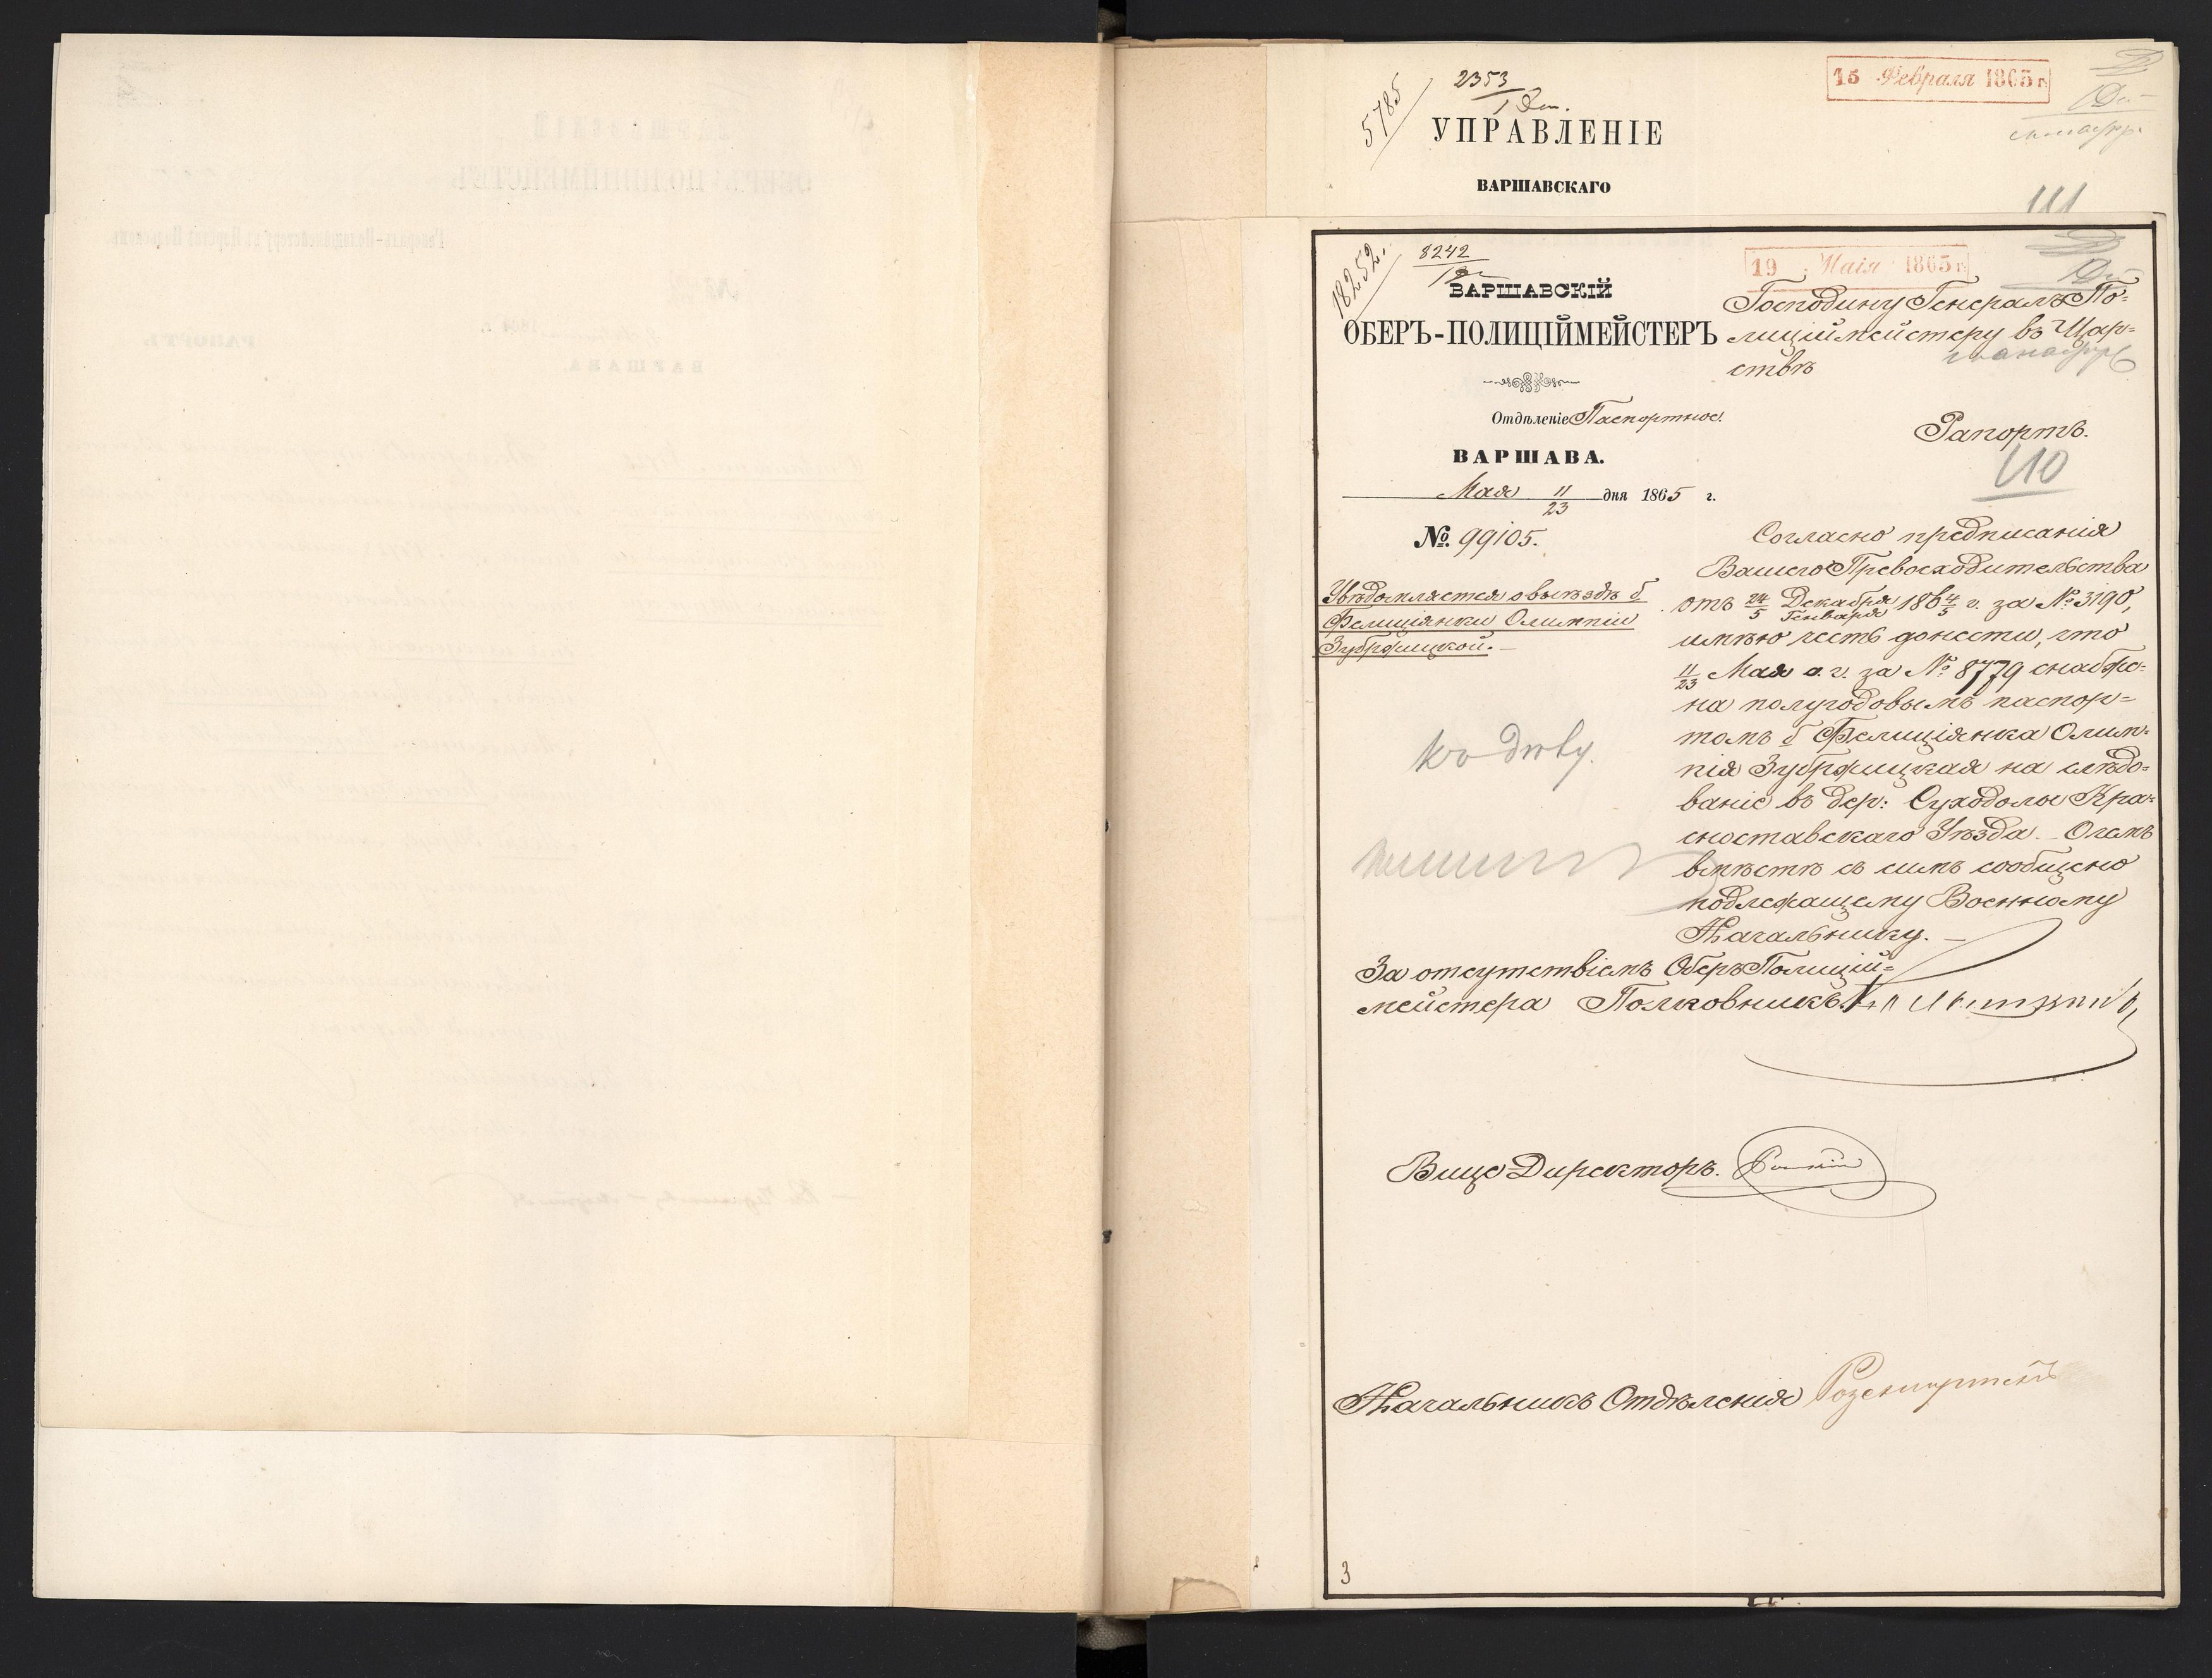 5785
2353
УПРАВЛЕНІЕ
ВАРШАВСКАГО
15 Февраля 1865 г.
111
18252.
8242
19 Маія 1865 г.
ВАРШАВСКІЙ
ОБЕРЪ-ПОЛИЦІЙМЕЙСТЕРЪ
Отдѣленіе Паспортное.
ВАРШАВА.
Мая 11/23 дня 1865 г.
№ 99105.
Увѣдомляется о выѣздѣ б.
Фелиціянки Олимпіи
Зубржицкой.
Къ дѣлу.
Господину Генералъ По-
лиціймейстеру въ Цар-
ствѣ
Рапортъ.
110
Согласно предписанія
Вашего Превосходительства
отъ 24/5 Декабря/Генваря 1864/5 г. за № 3190,
имѣю честь донести, что
11/23 Мая с. г. за № 8779 снабже-
на полугодовымъ паспор-
томъ б Фелиціянка Олим-
пія Зубржицкая на слѣдо-
ваніе въ дер: Суходолы Кра-
сноставскаго Уѣзда. О чемъ
вмѣстѣ съ симъ сообщено
подлежащему Военному
Начальнику. —
За отсутствіемъ Оберъ Полицій-
мейстера Полковникъ
Вице Директоръ.
Начальникъ Отдѣленія
3